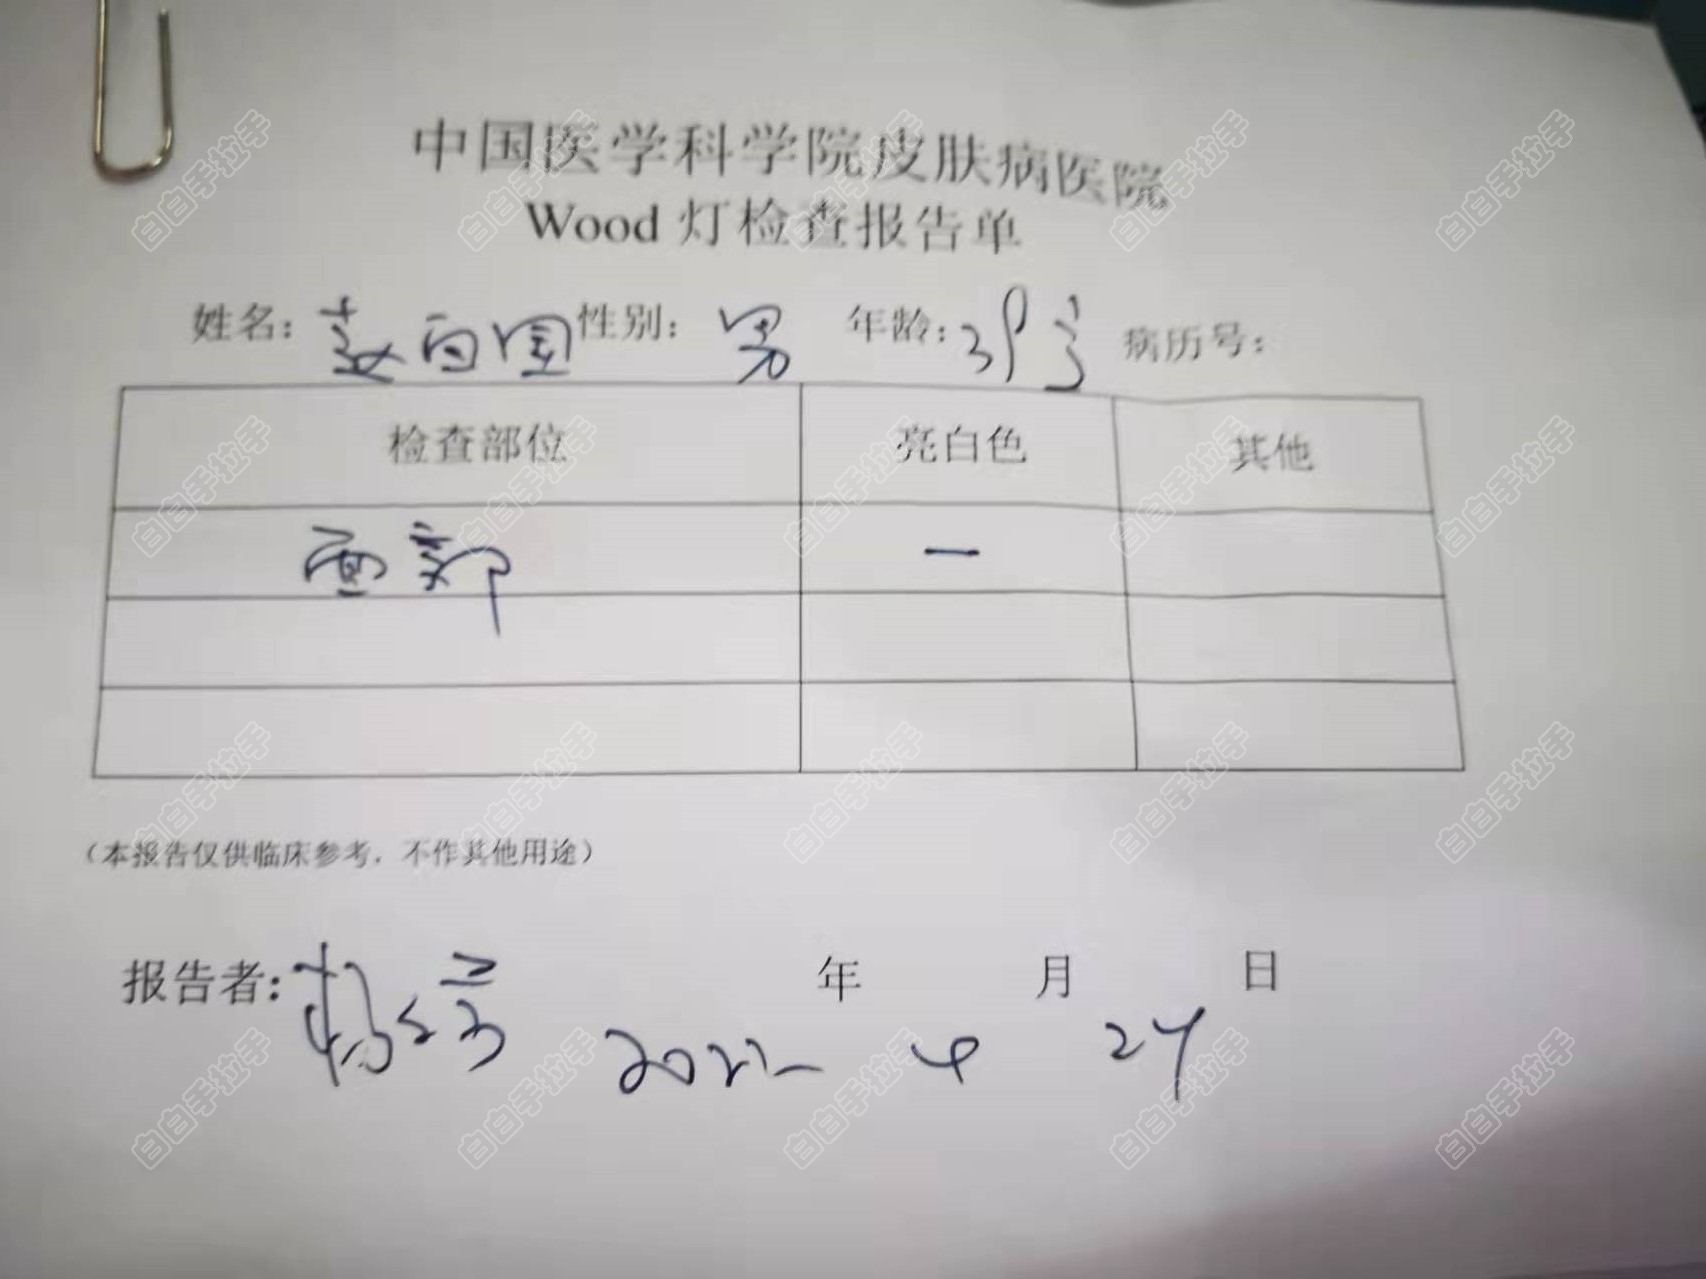 中国医学科学院皮肤病医院
Wood 灯检查报告单
姓名： 性别：男 年龄：39岁 病历号：
检查部位 亮白色 其他
面部 一
（本报告仅供临床参考，不作其他用途）
报告者： 年 月 日
2022 4 24
白白手拉手